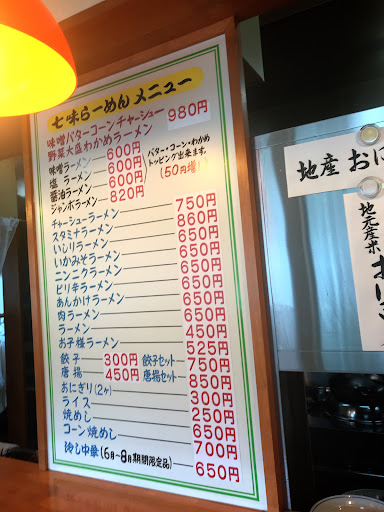 七味らーめんメニュー
味噌バターコーンチャーシュー
野菜大盛わかめラーメン 980円
味噌ラーメン 600円
塩 ラーメン 600円
醤油ラーメン 600円
ジャンボラーメン 820円
バター・コーン・わかめ
トッピング出来ます。
(50円増)
チャーシューラーメン 750円
スタミナラーメン 860円
いしりラーメン 650円
いかみそラーメン 650円
ニンニクラーメン 650円
ピリ辛ラーメン 650円
あんかけラーメン 650円
肉ラーメン 650円
ラーメン 450円
お子様ラーメン 525円
餃子 300円 餃子セット 750円
唐揚 450円 唐揚セット 850円
おにぎり(2ヶ) 300円
ライス 250円
焼めし 650円
コーン焼めし 700円
冷し中華(6月〜8月期間限定品) 650円
地産 おに
地元産米